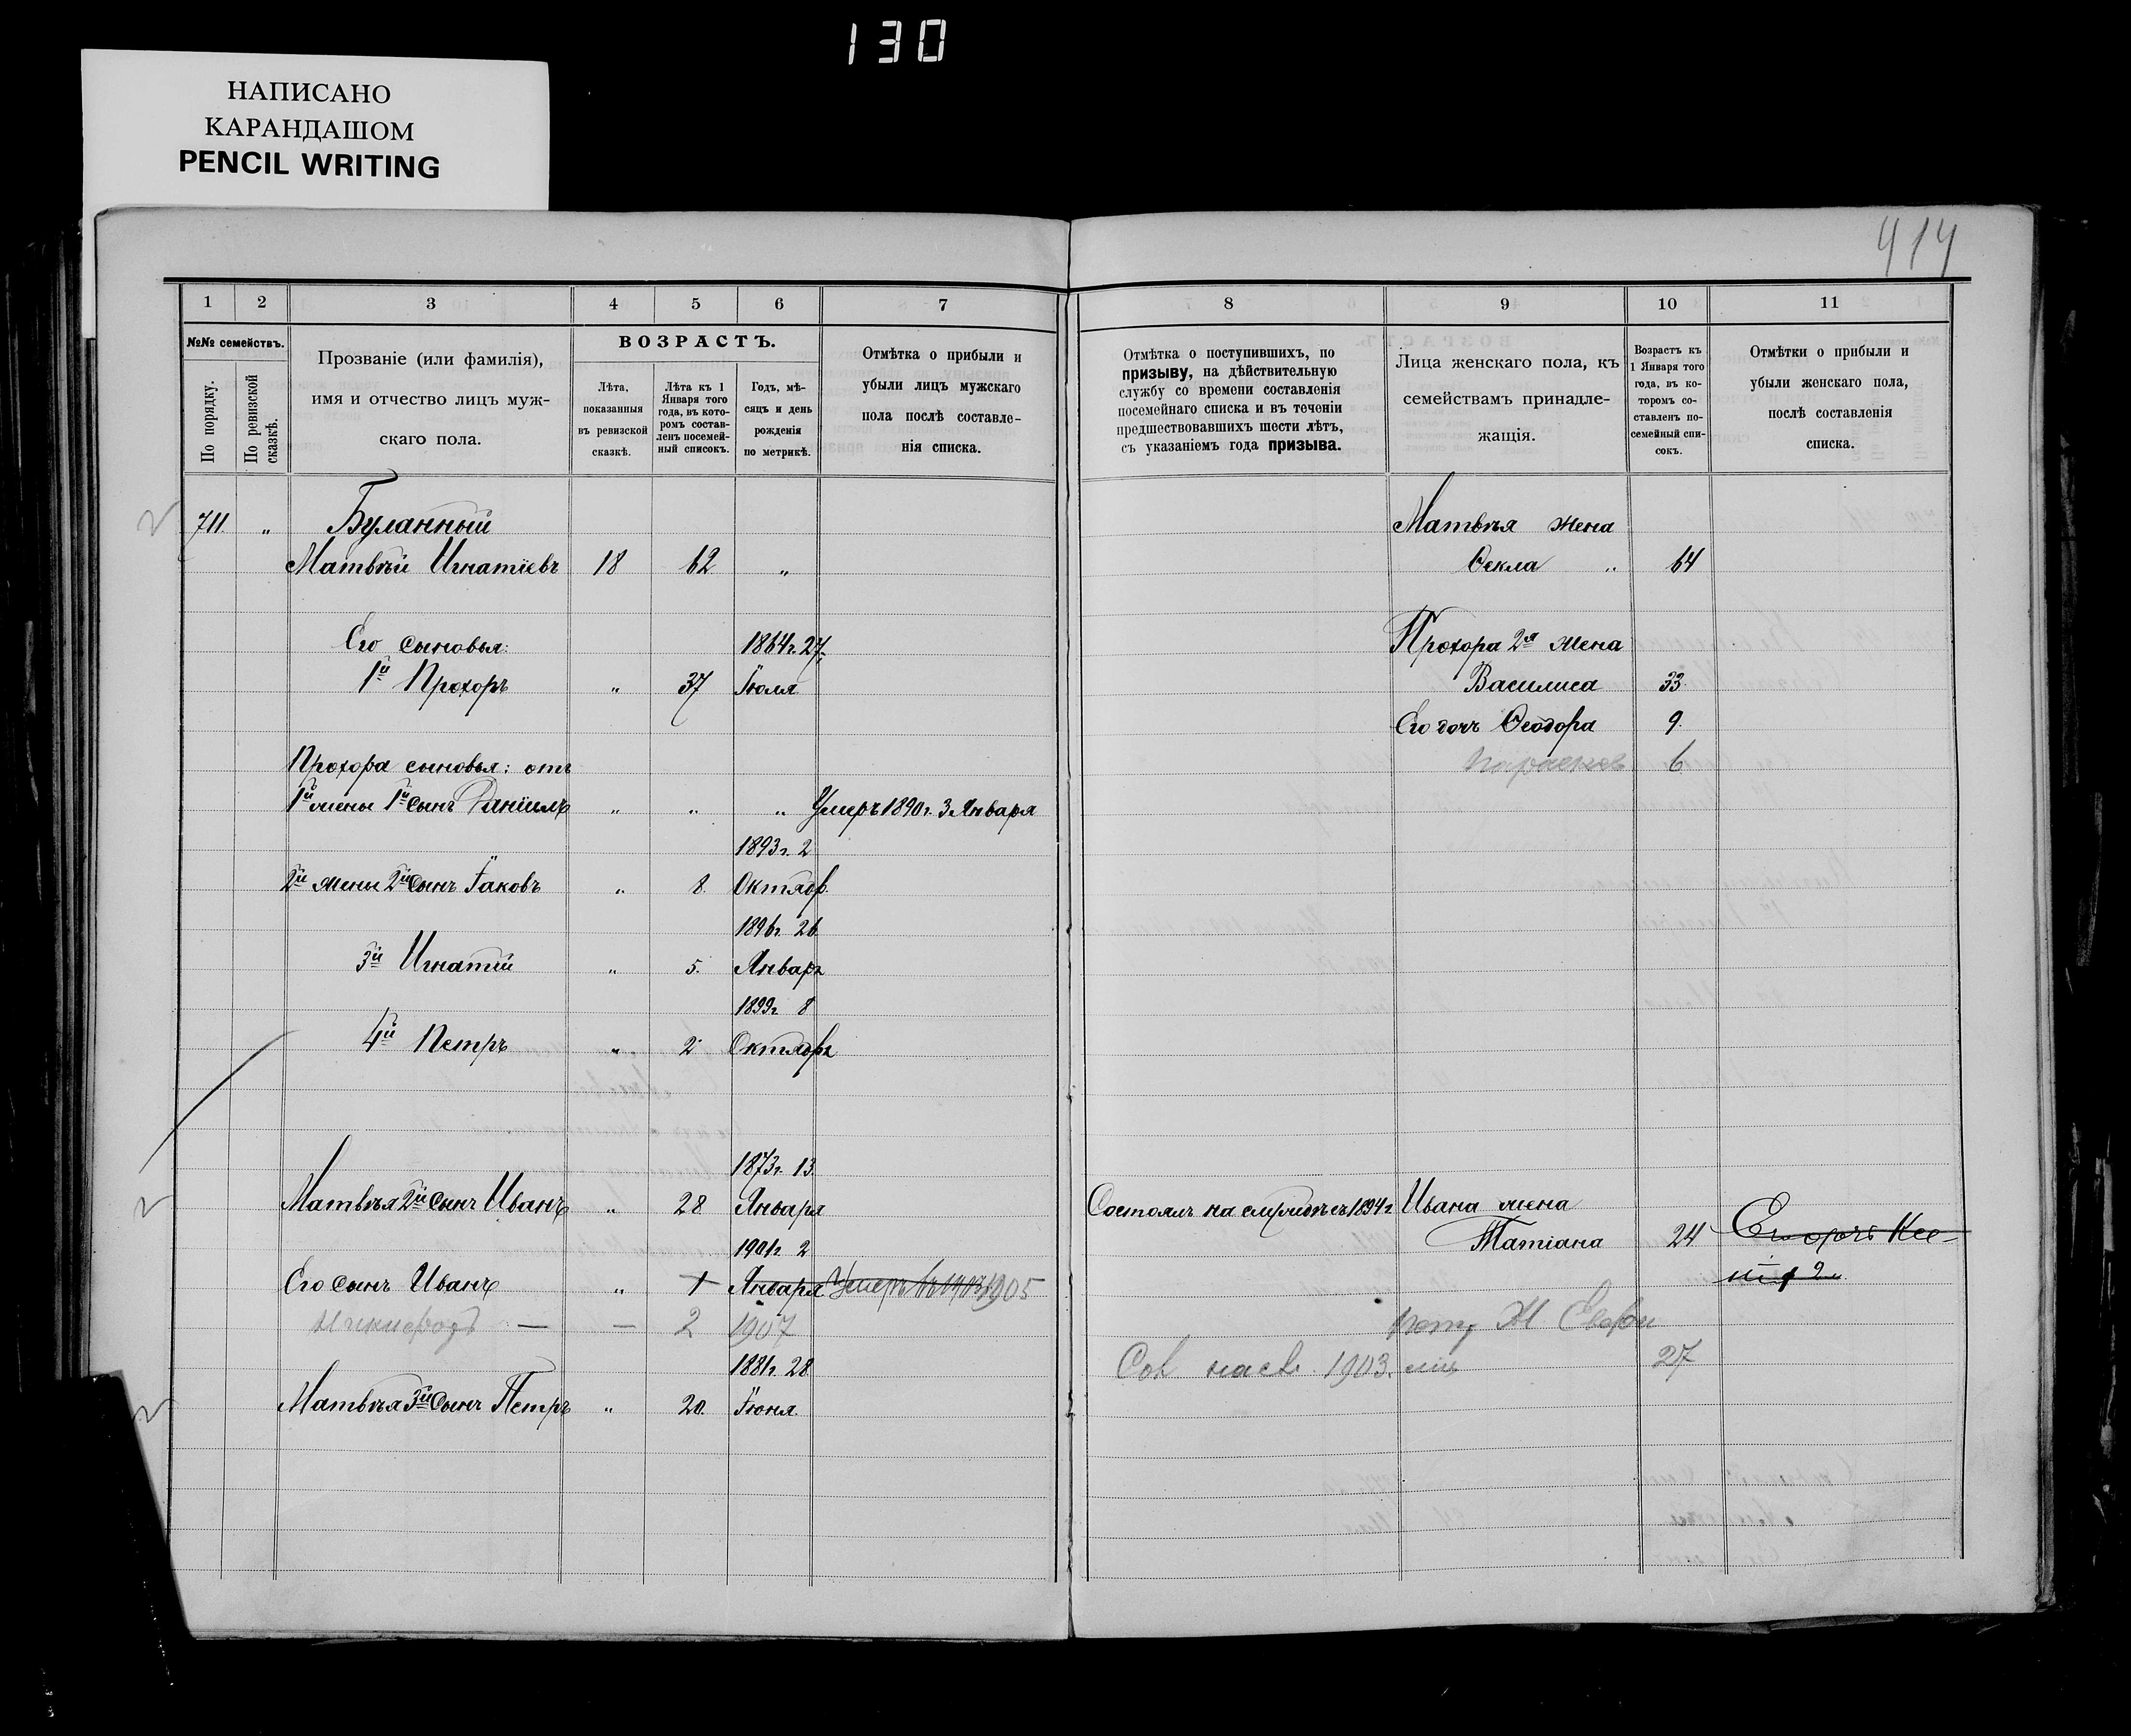 130
НАПИСАНО
КАРАНДАШОМ
PENCIL WRITING
414
1 2 3 4 5 6 7
№№ семействъ.
По порядку.
По ревизской сказкѣ.
Прозваніе (или фамилія),
имя и отчество лицъ муж-
скаго пола.
ВОЗРАСТЪ.
Лѣта,
показанныя
въ ревизской
сказкѣ.
Лѣта къ 1
Января того
года, въ кото-
ромъ состав-
ленъ посемей-
ный списокъ.
Годъ, мѣ-
сяцъ и день
рожденія
по метрикѣ.
Отмѣтка о прибыли и
убыли лицъ мужскаго
пола послѣ составле-
нія списка.
8 9 10 11
Отмѣтка о поступившихъ, по
призыву, на дѣйствительную
службу со времени составленія
посемейнаго списка и въ теченіи
предшествовавшихъ шести лѣтъ,
съ указаніемъ года призыва.
Лица женскаго пола, къ
семействамъ принадле-
жащія.
Возрастъ къ
1 Января того
года, въ ко-
торомъ со-
ставленъ по-
семейный спи-
сокъ.
Отмѣтки о прибыли и
убыли женскаго пола,
послѣ составленія
списка.
2 711 „ Буланный
Матвѣй Игнатіевъ 18 62 „
Его сыновья: 1864г. 27
1й Прохоръ „ 37 Іюля
Прохора сыновья: отъ
1й жены 1й сынъ Даніилъ „ „ „ Умеръ 1890г. 3 Января
1893г. 2
2й жены 2й сынъ Іаковъ „ 8. Октябр.
1896г. 26
3й Игнатій „ 5. Январь
1899г. 8
4й Петръ „ 2 Октября
1873г. 13.
2 Матвѣя 2й сынъ Иванъ „ 28 Января
1901г. 2
Его сынъ Иванъ „ 1 Января Умеръ въ 1905
— — 2 1907
1881г. 28
2 Матвѣя 3й сынъ Петръ „ 20. Іюня
Матвѣя жена
Ѳекла „ 64
Прохора 2я жена
Василиса 33.
Его дочь Ѳеодора 9.
Параскев 6
Состоялъ на службѣ съ 1894г. Ивана жена
Татіана 24
2
Петр Ж
1903. 27